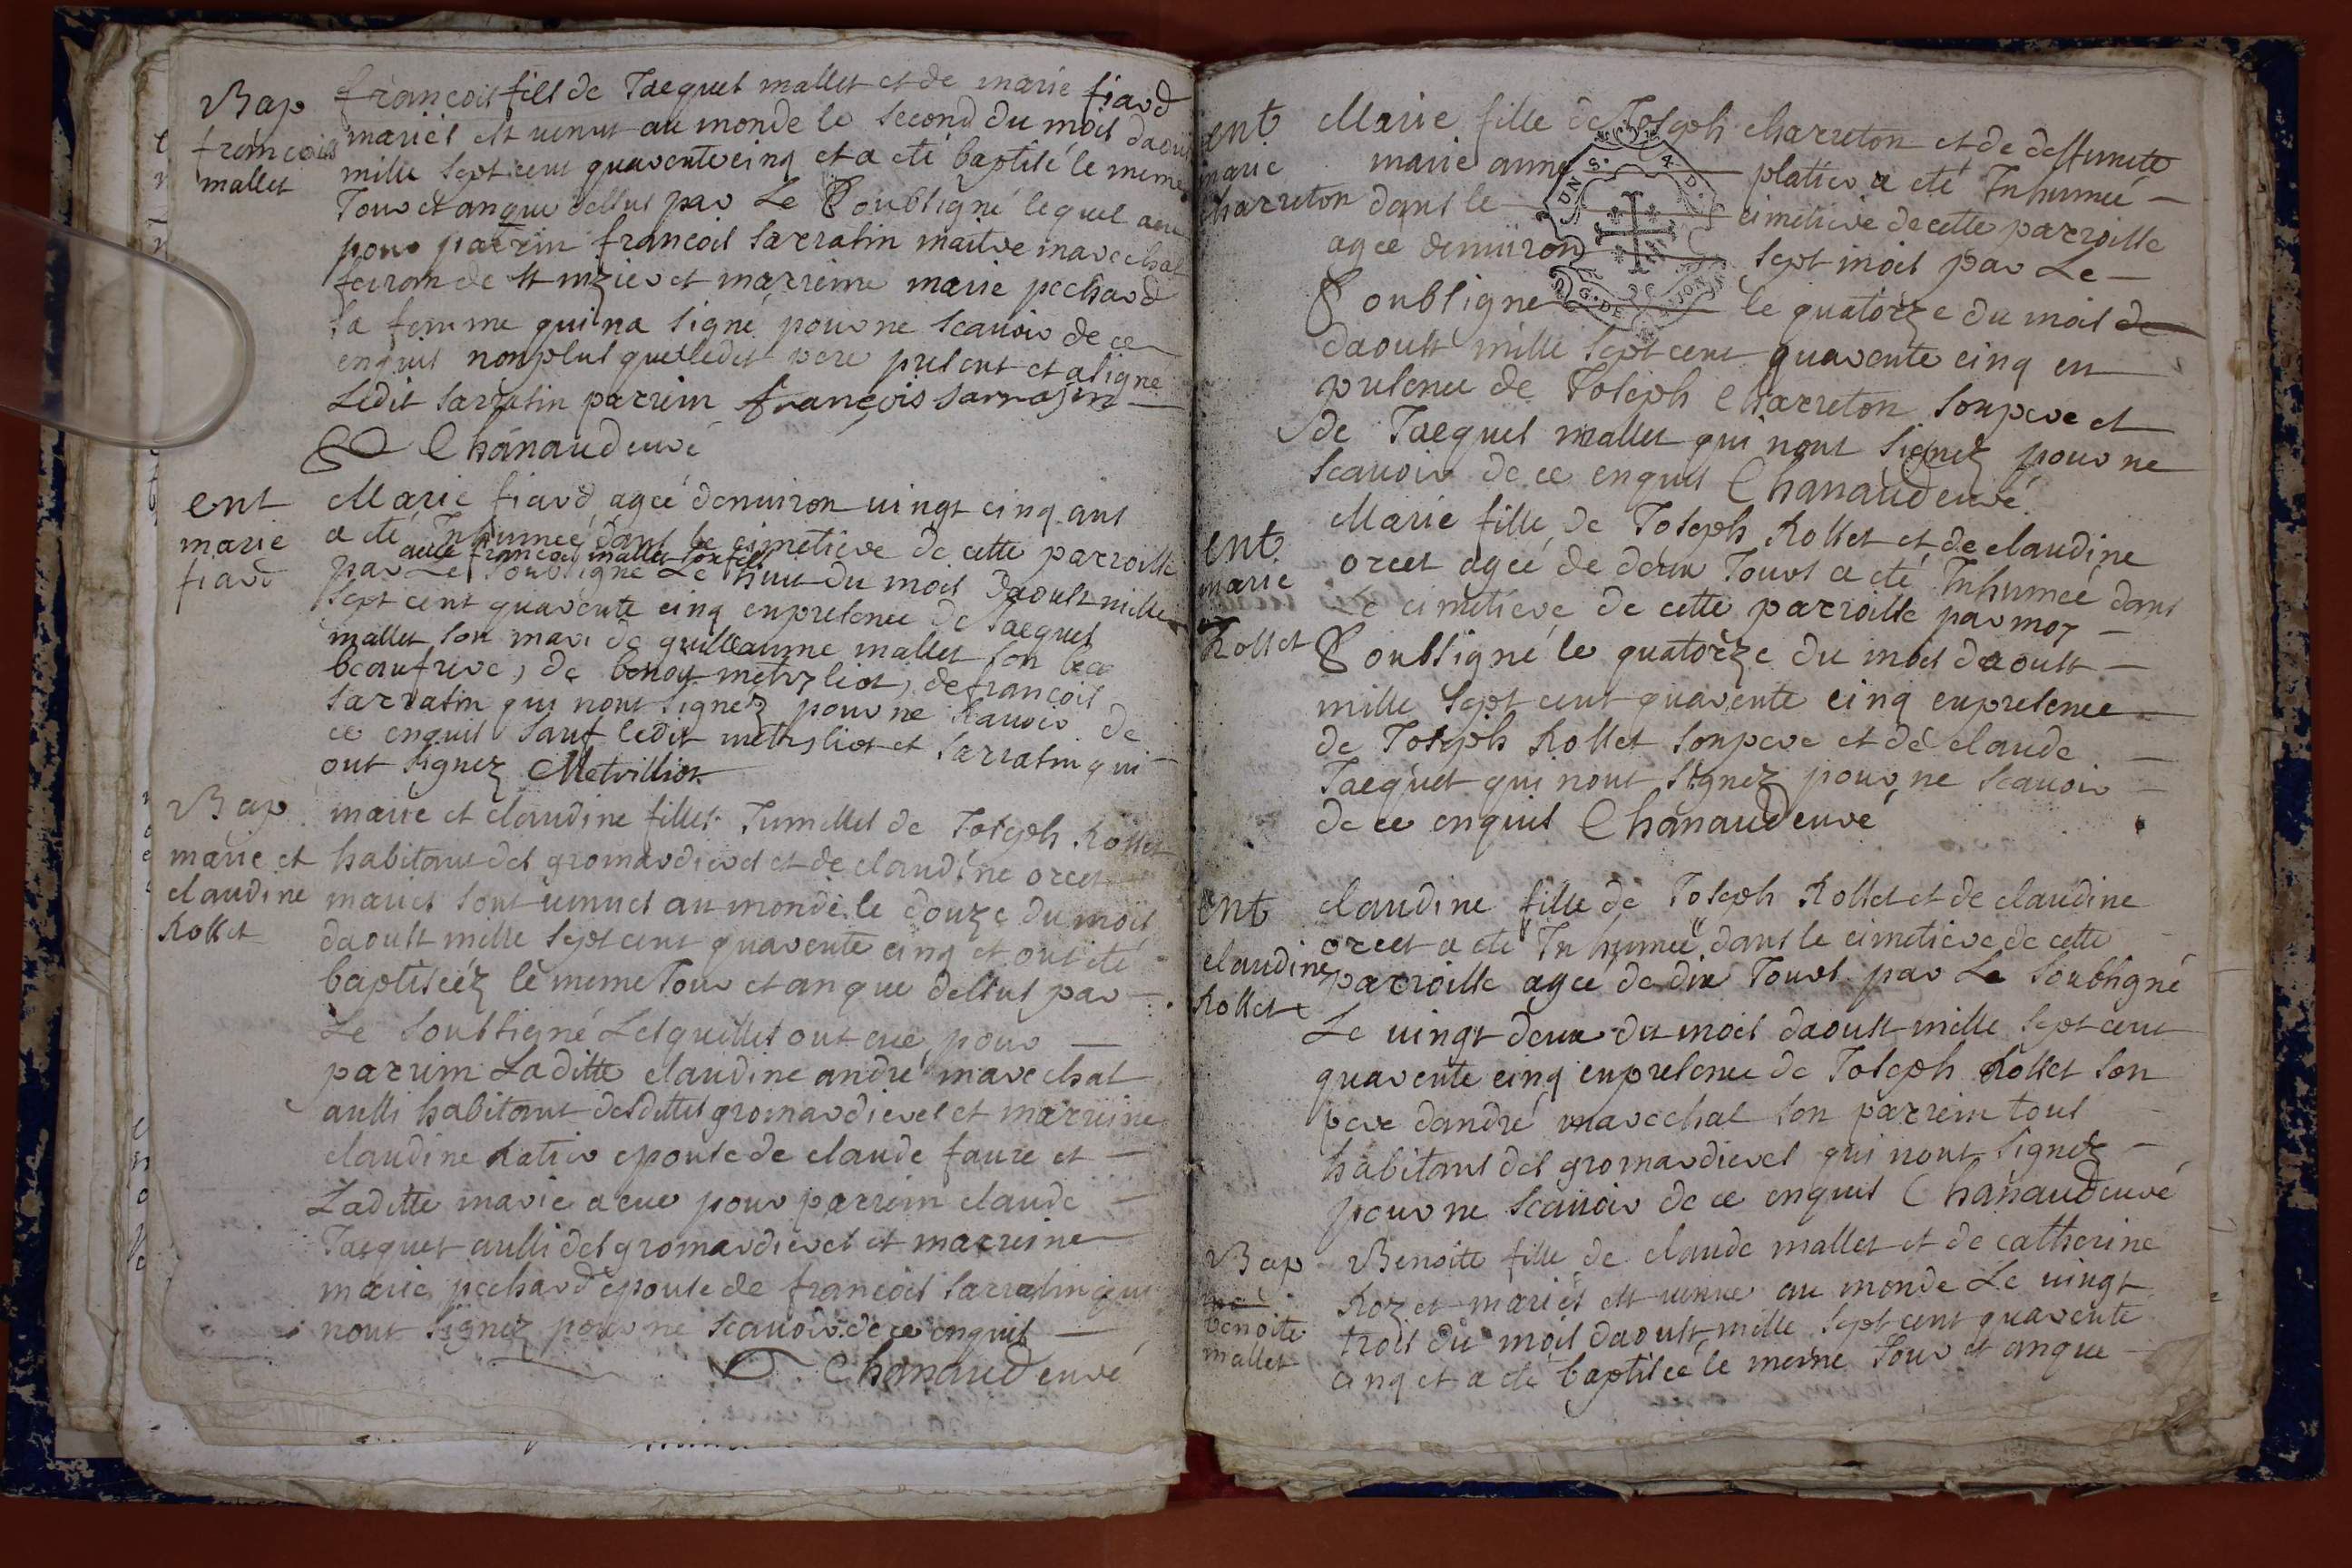 Bap
francois
mallet
francois fils de Jacques mallet et de marie fiard
mariés est venut au monde le second du mois daoust
mille sept cent quarente cinq et a eté baptisé le meme
Jour et an que dessus par Le Soubsigné lequel a eu
pour parrin francois sarrasin maitre marechal
de st nizier et marrine marie pechard
sa femme qui na signé pour ne scavoir de ce
enquis non plus que ledit pere present et a signé
Ledit sarrasin parrin françois sarrasin
Chanaud curé
ent
marie
fiard
Marie fiard agée denviron vingt cinq ans
a eté Inhumée dans le cimetiere de cette parroisse
avec francois mallet son fils
par Le soubsigné Le huit du mois daoust mille
sept cent quarente cinq en presence de Jacques
mallet son mari de guilleaume mallet son beau
beaufrere, de benoy metrilliot, de francois
sarrasin qui nont signéz pour ne scavoir de
ce enquis sauf ledit metrilliot et sarrasin qui
ont signez Metrilliot
Bap
marie et
claudine
Rollet
marie et claudine filles Jumelles de Joseph Rollet
habitans des gromardieres et de claudine orcet
mariés sont venues au monde le douze du mois
daoust mille sept cent quarente cinq et ont eté
baptiséez le meme Jour et an que dessus par
Le soubsigné Lesquelles ont eue pour
parrein Laditte claudine andré marechal
aussi habitant desdittes gromardieres et marreine
claudine Ratier epouse de claude faure et
Laditte marie a eue pour parrein claude
Jacquet aussi des gromardieres et marreine
marie pechard epouse de francois sarrasin qui
nont signez pour ne scavoir de ce enquis
Chanaud curé
ent
marie
charreton
Marie fille de Joseph charreton et de deffunte
marie anne platier a eté Inhumée
dans le cimetiere de cette parroisse
agée denviron sept mois par Le
Soubsigné le quatorze du mois de
daoust mille sept cent quarente cinq en
presence de Joseph Charreton son pere et
de Jacques mallet qui nont signez pour ne
scavoir de ce enquis Chanaud curé
ent
marie
Rollet
Marie fille de Joseph Rollet et de claudine
orcet agée de deux Jours a eté Inhumée dans
le cimetiere de cette parroisse par moy
Soubsigné le quatorze du mois daoust
mille sept cent quarente cinq en presence
de Joseph Rollet son pere et de claude
Jacquet qui nont signez pour ne scavoir
de ce enquis Chanaud curé
ent
claudine
Rollet
claudine fille de Joseph Rollet et de claudine
orcet a eté Inhumée dans le cimetiere de cette
parroisse agée de dix Jours par Le soubsigné
Le vingt deux du mois daoust mille sept cent
quarente cinq en presence de Joseph Rollet son
pere dandré marechal son parrein tous
habitans des gromardieres qui nont signez
pour ne scavoir de ce enquis Chanaud curé
Bap
benoite
mallet
Benoite fille de claude mallet et de catherine
Rozet mariés est venue au monde Le vingt
trois du mois daoust mille sept cent quarente
cinq et a eté baptisée le meme Jour et an que